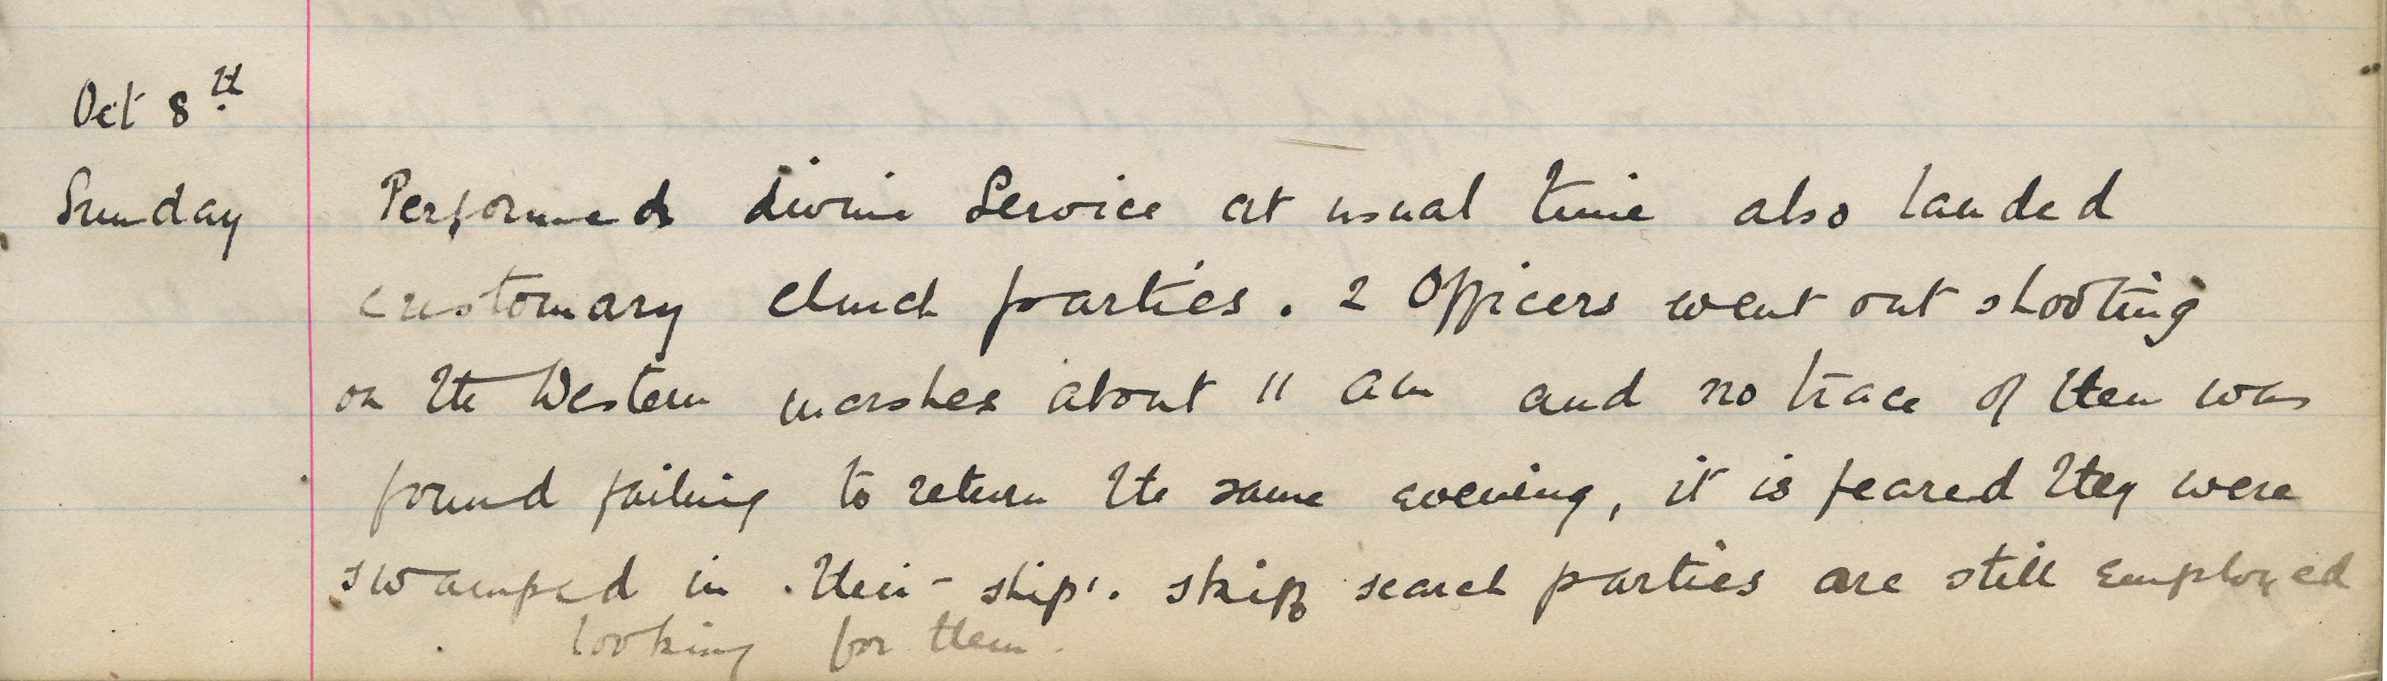 Oct 8th
Sunday Performed divine Service at usual time also landed
customary church parties. 2 Officers went out shooting
on the Western marshes about 11 am and no trace of them was
found failing to return the same evening, it is feared they were
swamped in their - ship'. skiff search parties are still employed
looking for them.